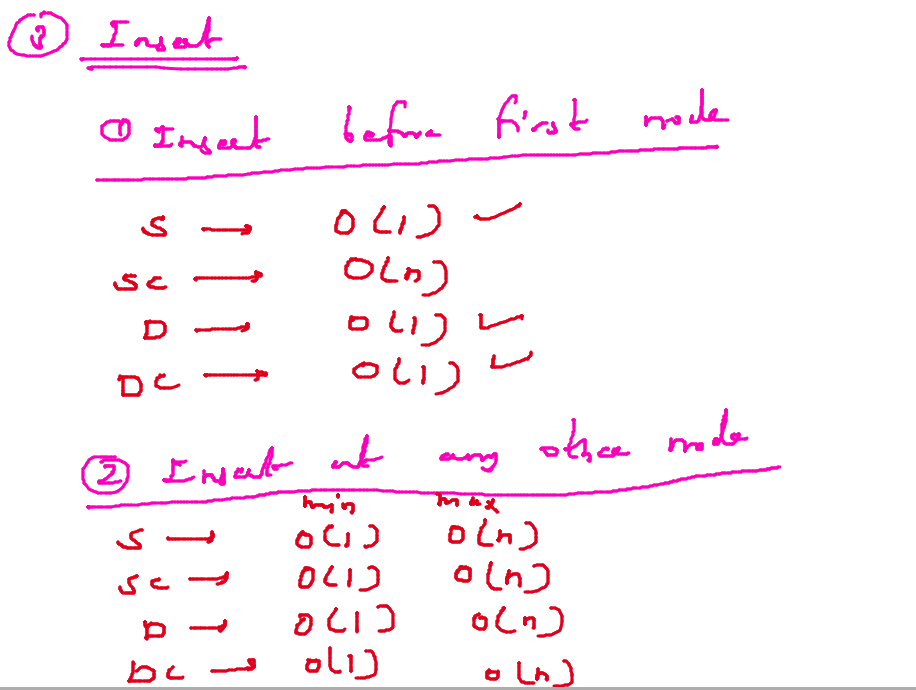 ③ Insert
① Insert before first node
S → O(1) ✓
SC → O(n)
D → O(1) ✓
DC → O(1) ✓
② Insert at any other node
min max
S → O(1) O(n)
SC → O(1) O(n)
D → O(1) O(n)
DC → O(1) O(n)